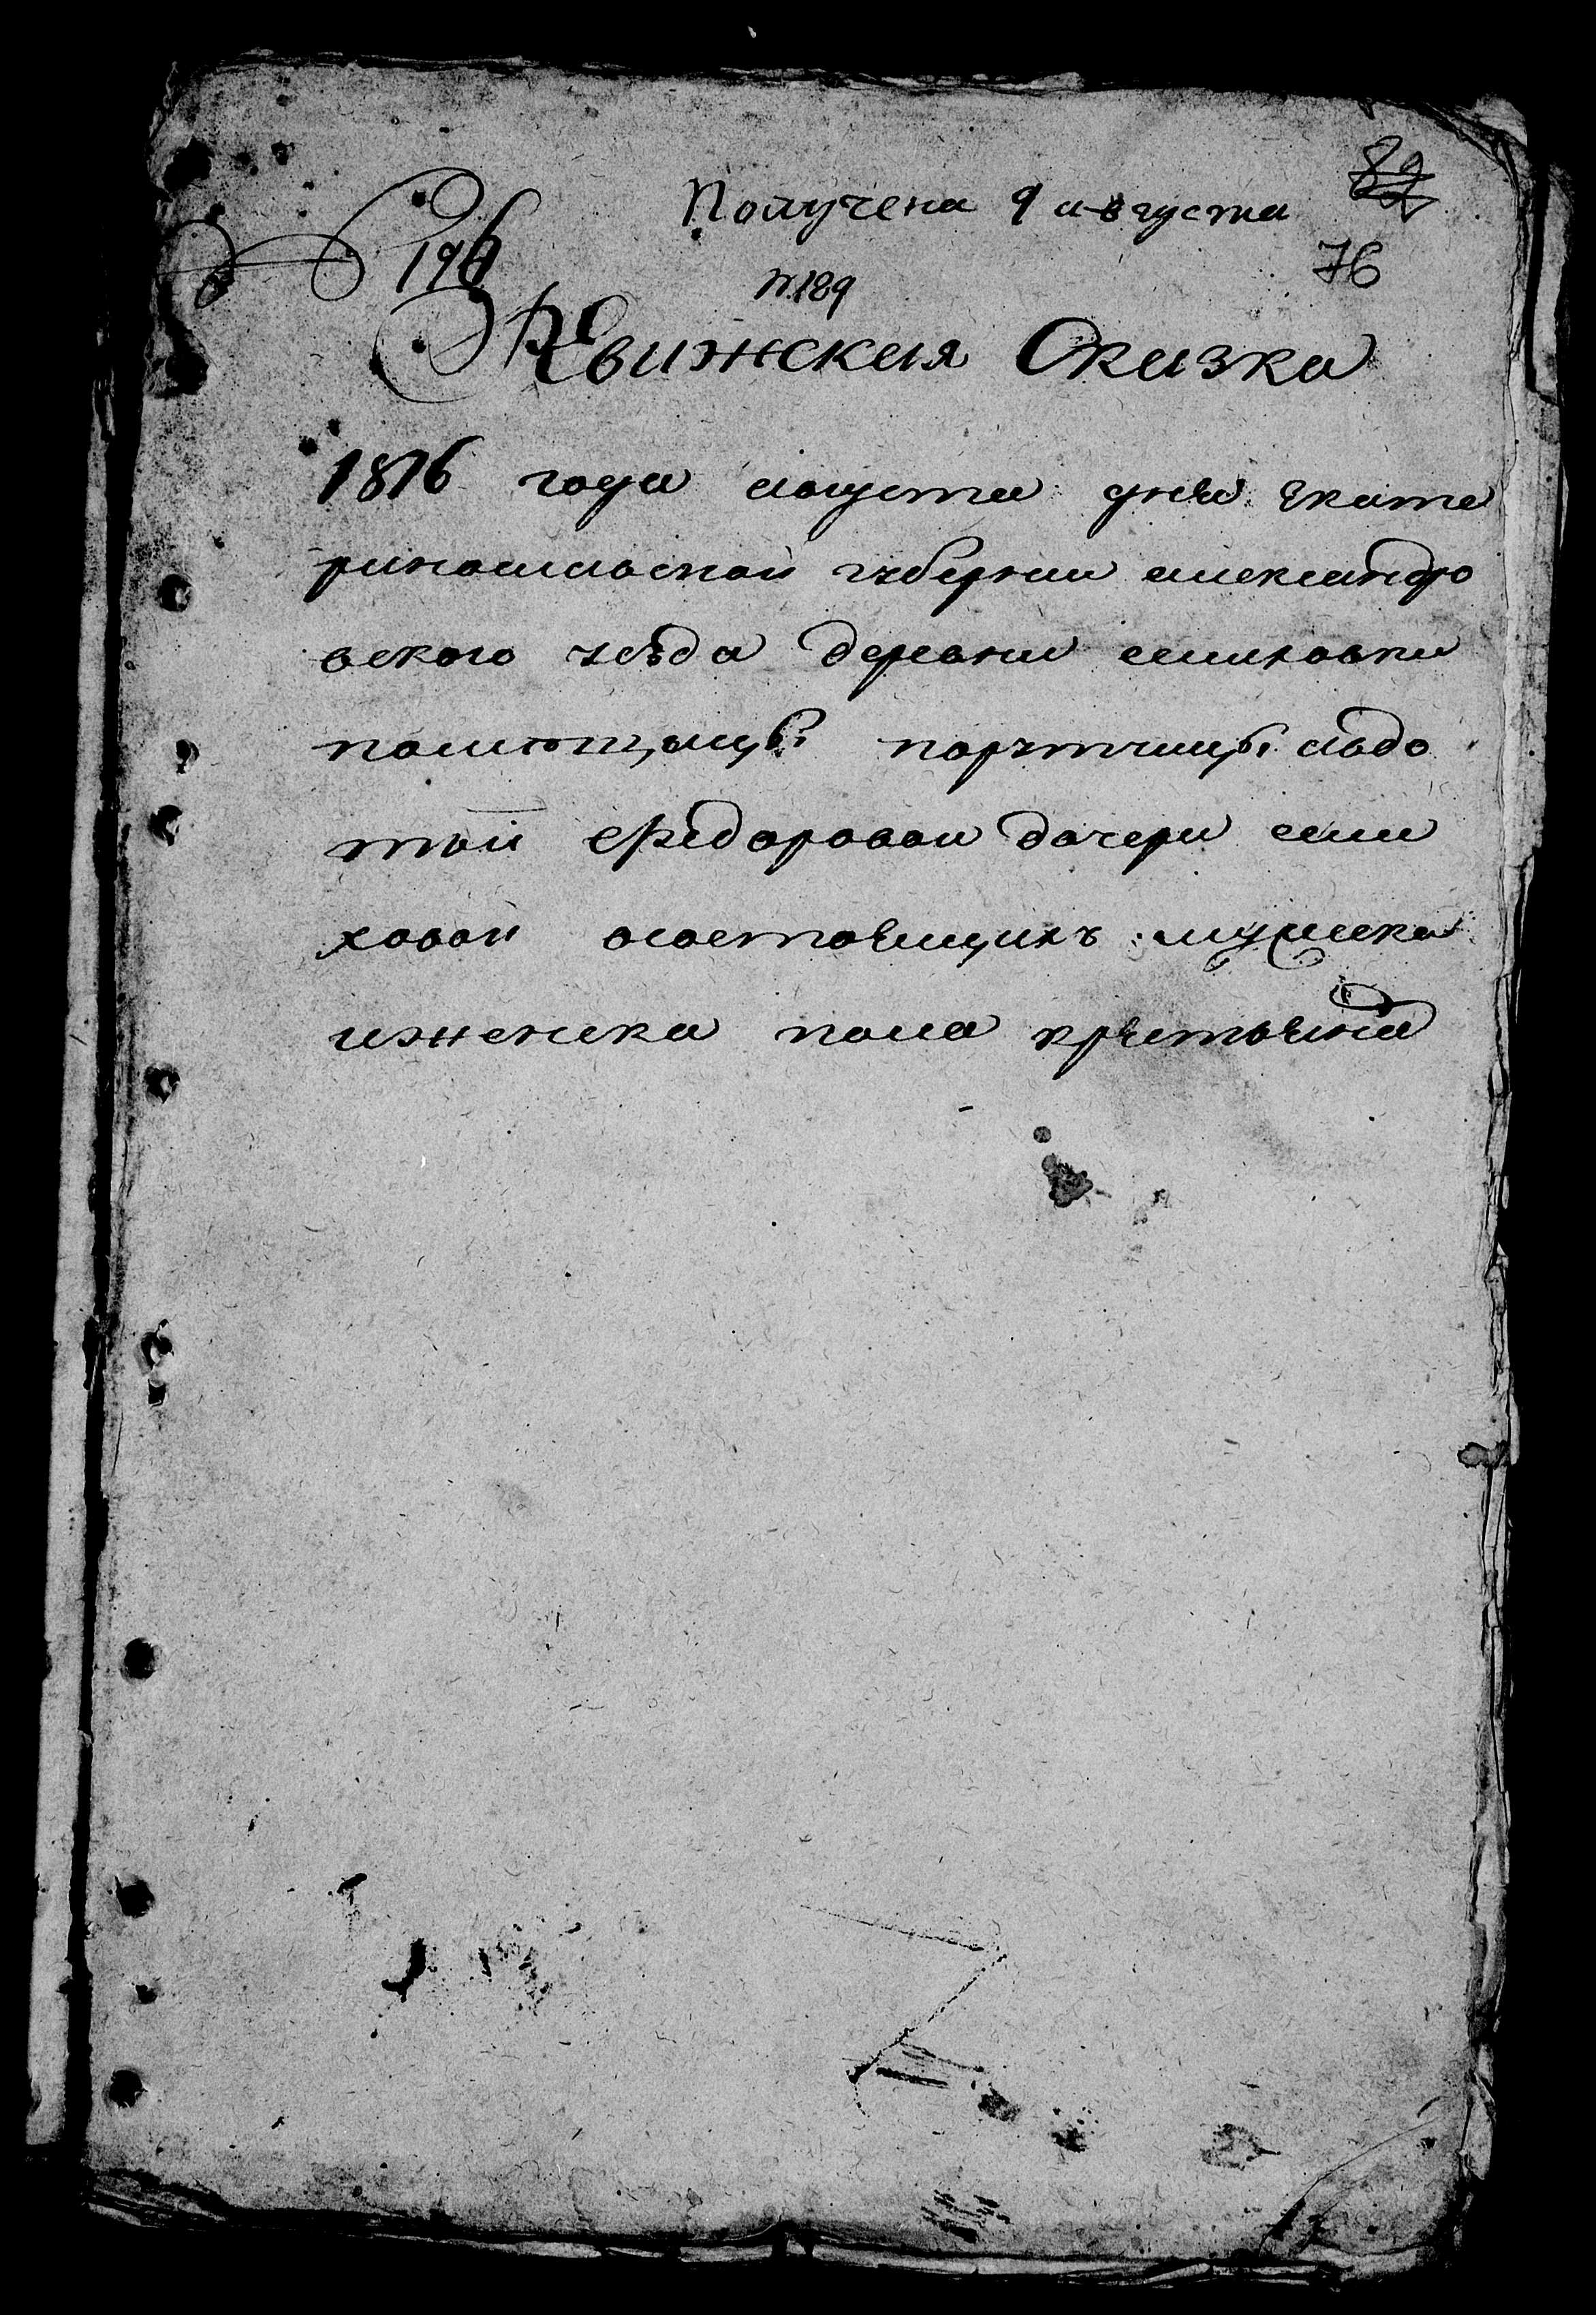 Получена 9 августа
82
196
76
№189
Ревижская Сказка
1816 года августа дня Екате
ринославской губернии александро
вского уезда деревни селиховки
помещицы порутчицы авдо
тьи Федоровой дочери сели
ховой осостоящихъ мужска
иженска пола крестьяна